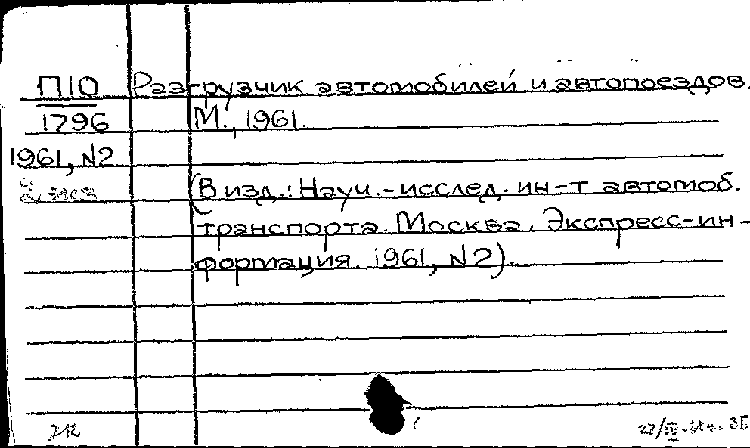 П10 Разгрузчик автомобилей и автопоездов.
1796 М., 1961.
1961, N2
2 экз
(В изд.: Науч.-исслед. ин-т автомоб.
транспорта. Москва. Экспресс-ин-
формация. 1961, N2).